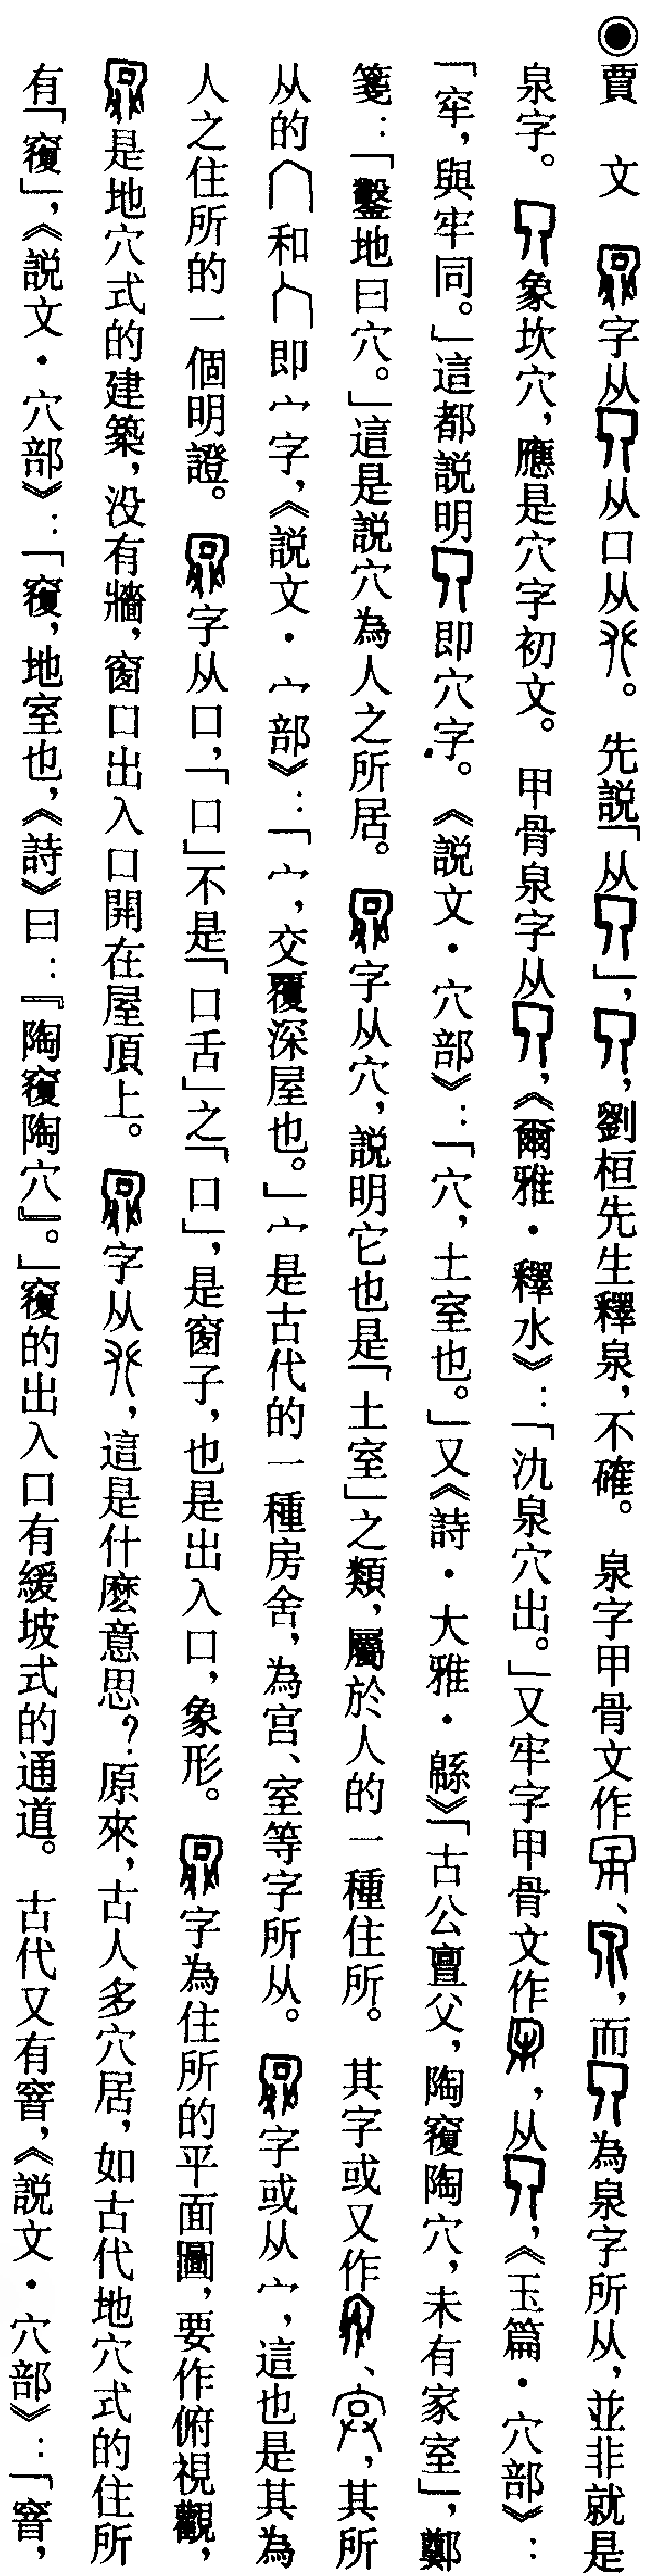 ◉賈 文 字从从口从。先説「从」,,劉桓先生釋泉,不確。泉字甲骨文作、,而為泉字所从,並非就是
泉字。象坎穴,應是穴字初文。甲骨泉字从,《爾雅·釋水》:「氿泉穴出。」又牢字甲骨文作,从,《玉篇·穴部》:
「窂,與牢同。」這都説明即穴字。《説文·穴部》:「穴,土室也。」又《詩·大雅·緜》「古公亶父,陶窽陶穴,未有家室」,鄭
箋:「鑿地曰穴。」這是説穴為人之所居。字从穴,説明它也是「土室」之類,屬於人的一種住所。其字或又作、,其所
从的和即宀字,《説文·宀部》:「宀,交覆深屋也。」宀是古代的一種房舍,為宫、室等字所从。字或从宀,這也是其為
人之住所的一個明證。字从口,「口」不是「口舌」之「口」,是窗子,也是出入口,象形。字為住所的平面圖,要作俯視觀,
是地穴式的建築,没有牆,窗口出入口開在屋頂上。字从,這是什麽意思?原來,古人多穴居,如古代地穴式的住所
有「寝」,《説文·穴部》:「䆫,地室也,《詩》曰:『陶陶穴』。」的出入口有緩坡式的通道。古代又有窨,《説文·穴部》:「窨,